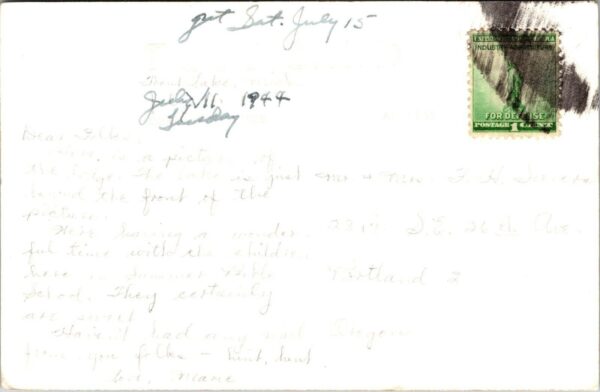 got Sat. July 15
July 11, 1944
Tuesday
Dear Folks,
Here is a picture of
the lodge. The lake is just
beyond the front of the
picture.
We're having a wonder-
ful time with the children
here in Summer Bible
School. They certainly
are sweet
Haven't had any mail
from you folks - hint, hint.
Love,
Mr & Mrs. F. H.
S.E. 26th Ave.
Portland 2
Oregon
INDUSTRY AGRICULTURE
FOR DEFENSE
POSTAGE 1 CENT